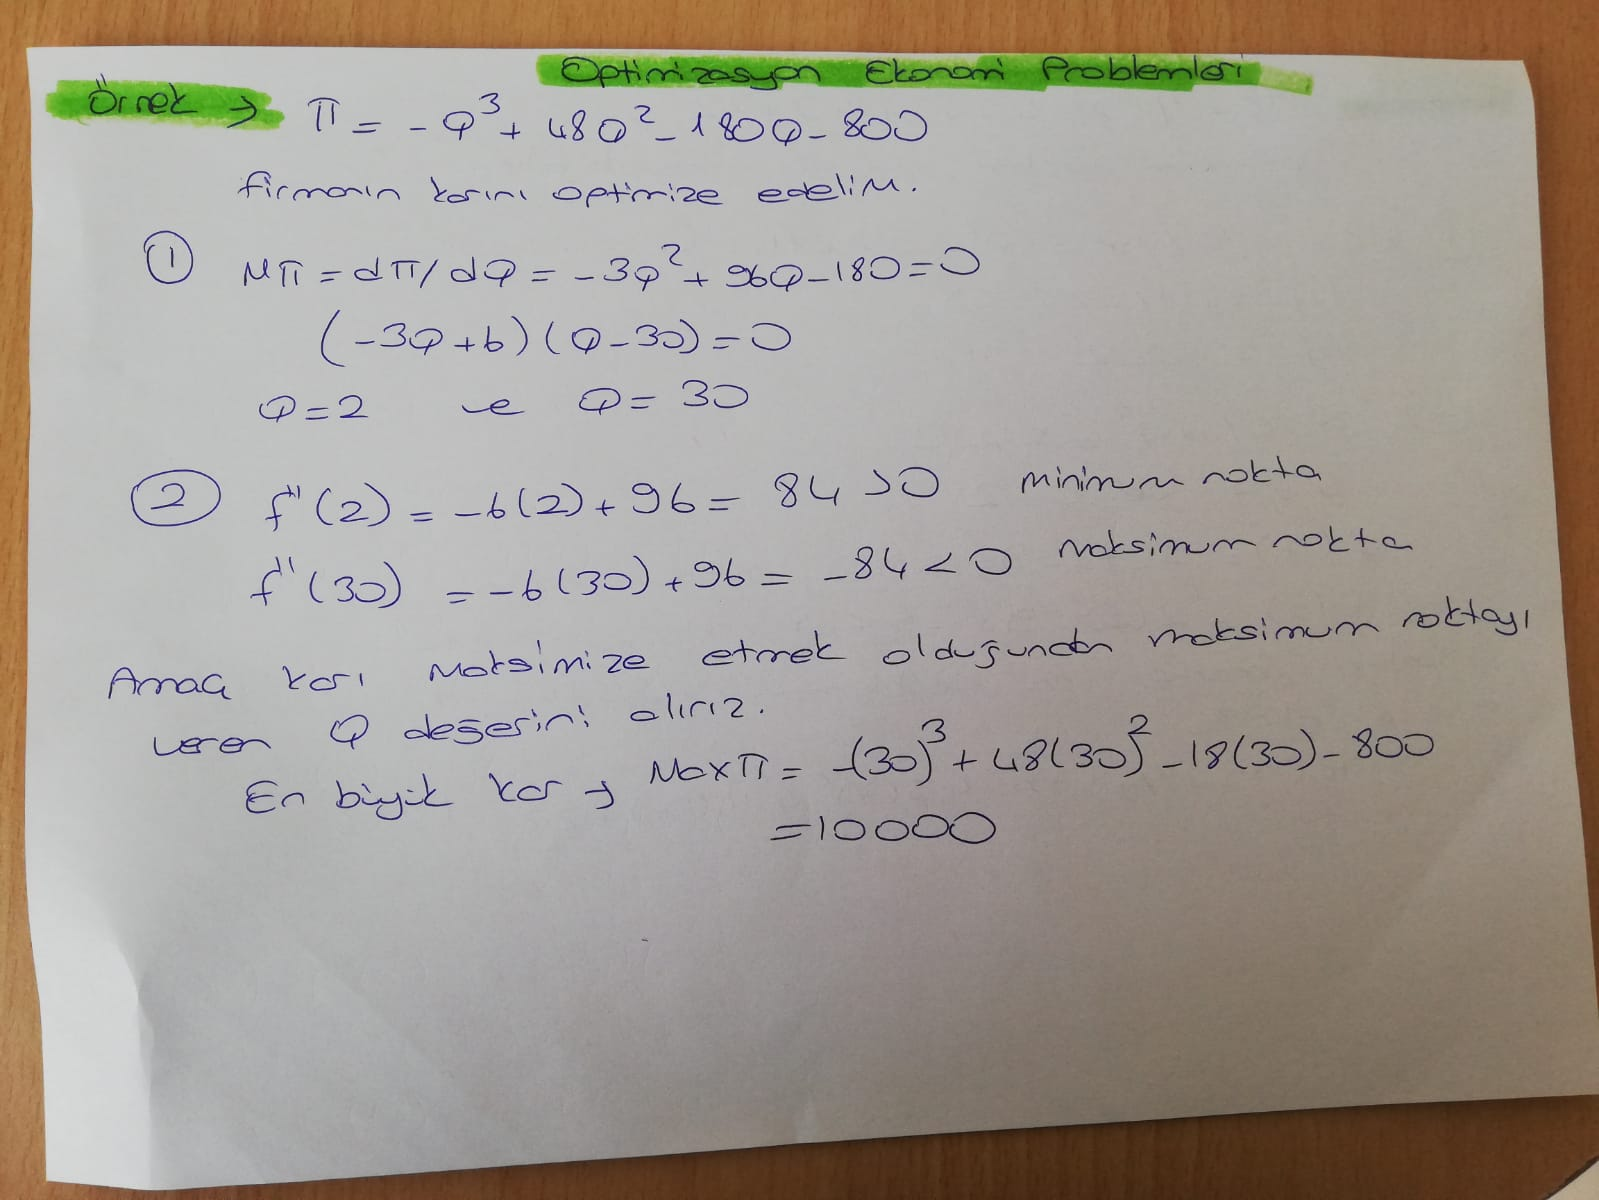 Optimizasyon Ekonomi Problemleri
Örnek → π = -Q³ + 48Q² - 180Q - 800
firmanın karını optimize edelim.
① Mπ = dπ/dQ = -3Q² + 96Q - 180 = 0
(-3Q+6)(Q-30) = 0
Q=2 ve Q=30
② f''(2) = -6(2) + 96 = 84 > 0 minimum nokta
f''(30) = -6(30) + 96 = -84 < 0 Maksimum nokta
Amaç karı Maksimize etmek olduğundan maksimum noktayı
veren Q değerini alırız.
En büyük kar → Max π = -(30)³ + 48(30)² - 18(30) - 800
= 10000